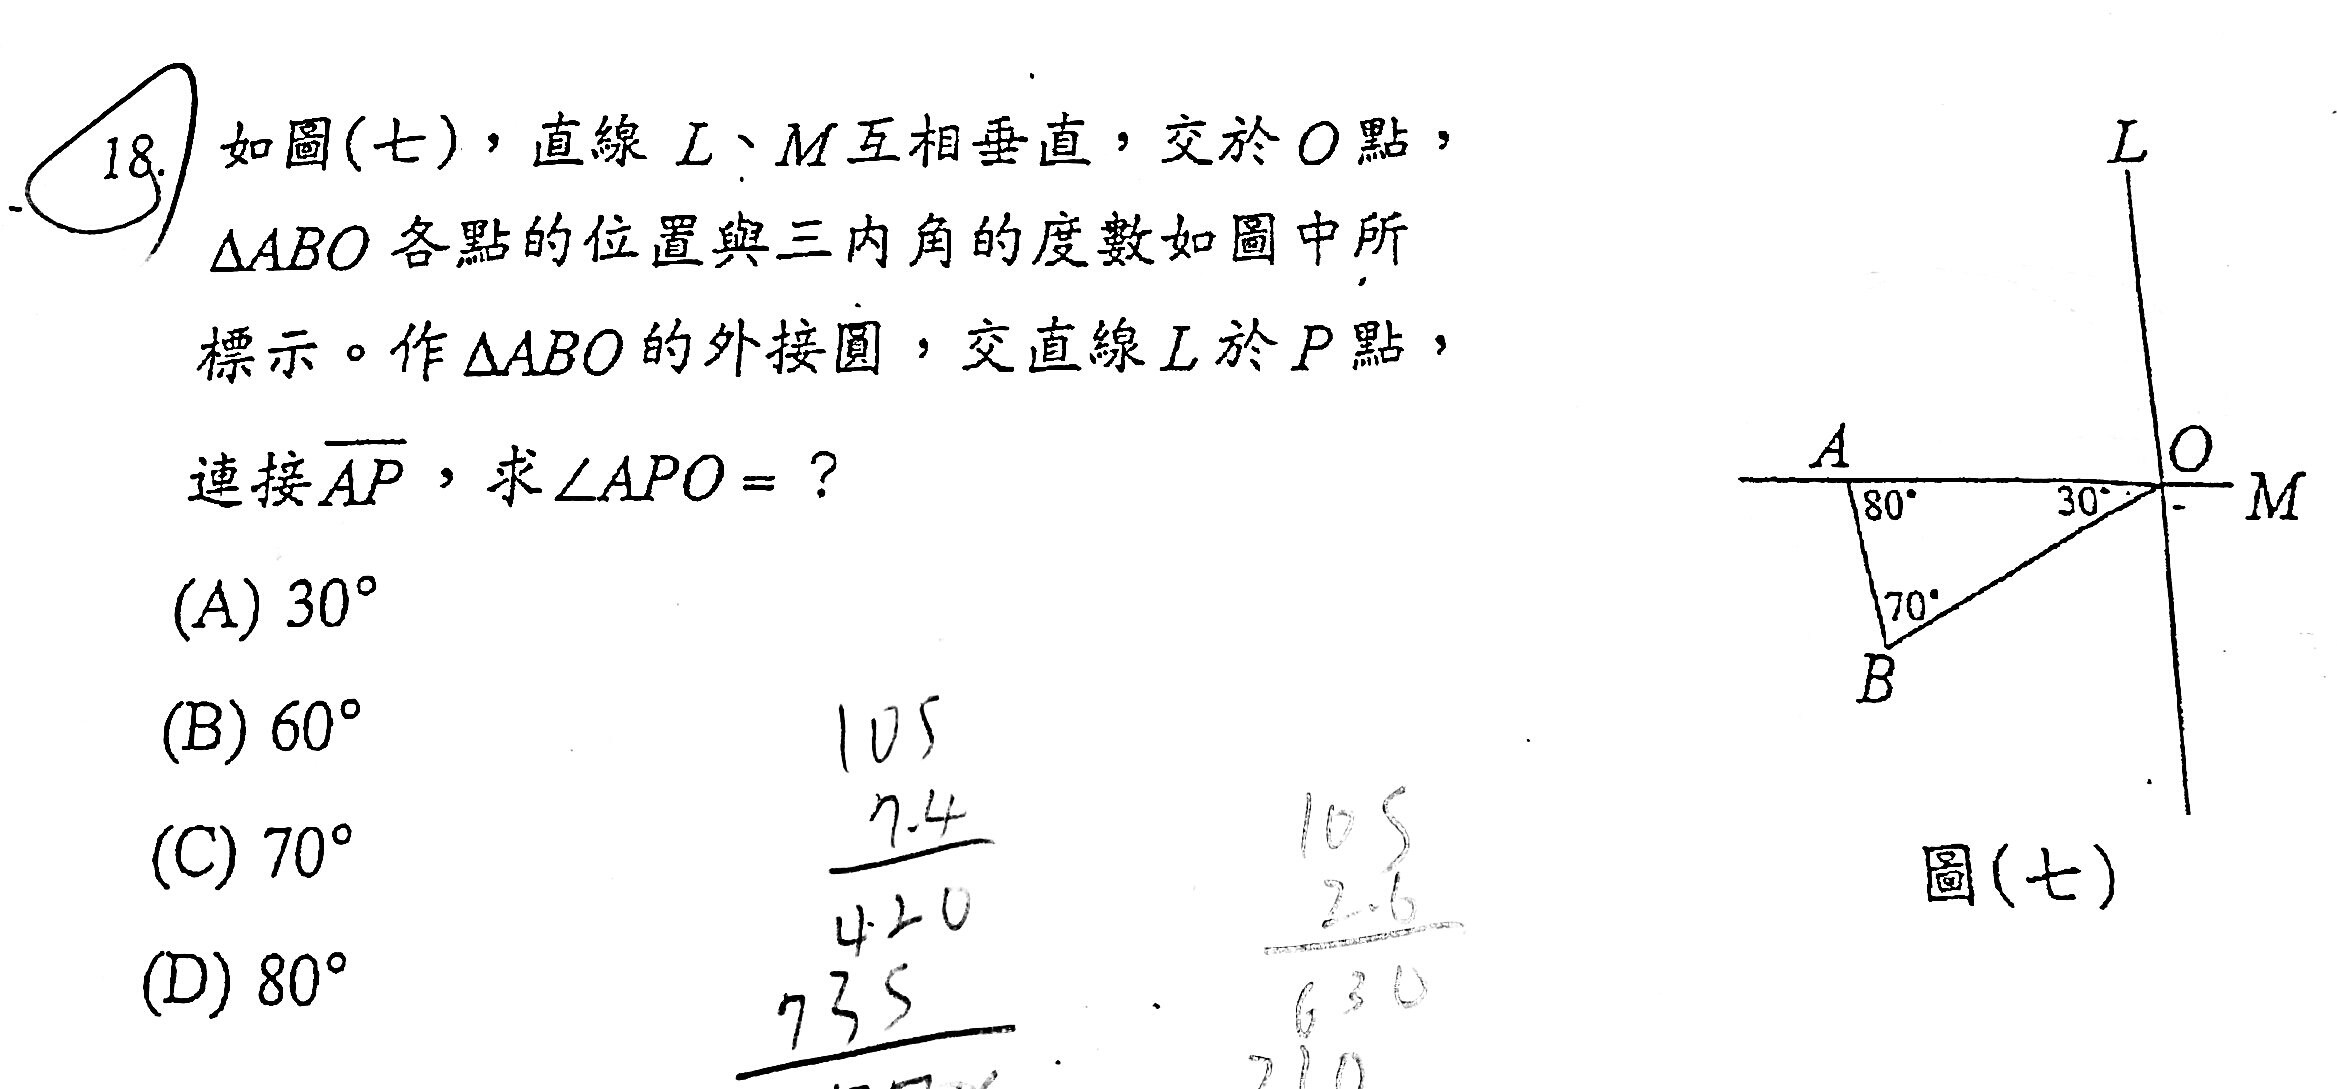 18. 如圖(七)，直線 L、M互相垂直，交於O點，
ΔABO 各點的位置與三內角的度數如圖中所
標示。作ΔABO的外接圓，交直線L於P點，
連接AP，求∠APO = ？
(A) 30°
(B) 60°
(C) 70°
(D) 80°
L
A
O
M
80°
30°
70°
B
圖(七)
105
7.4
420
735
105
2.6
630
210